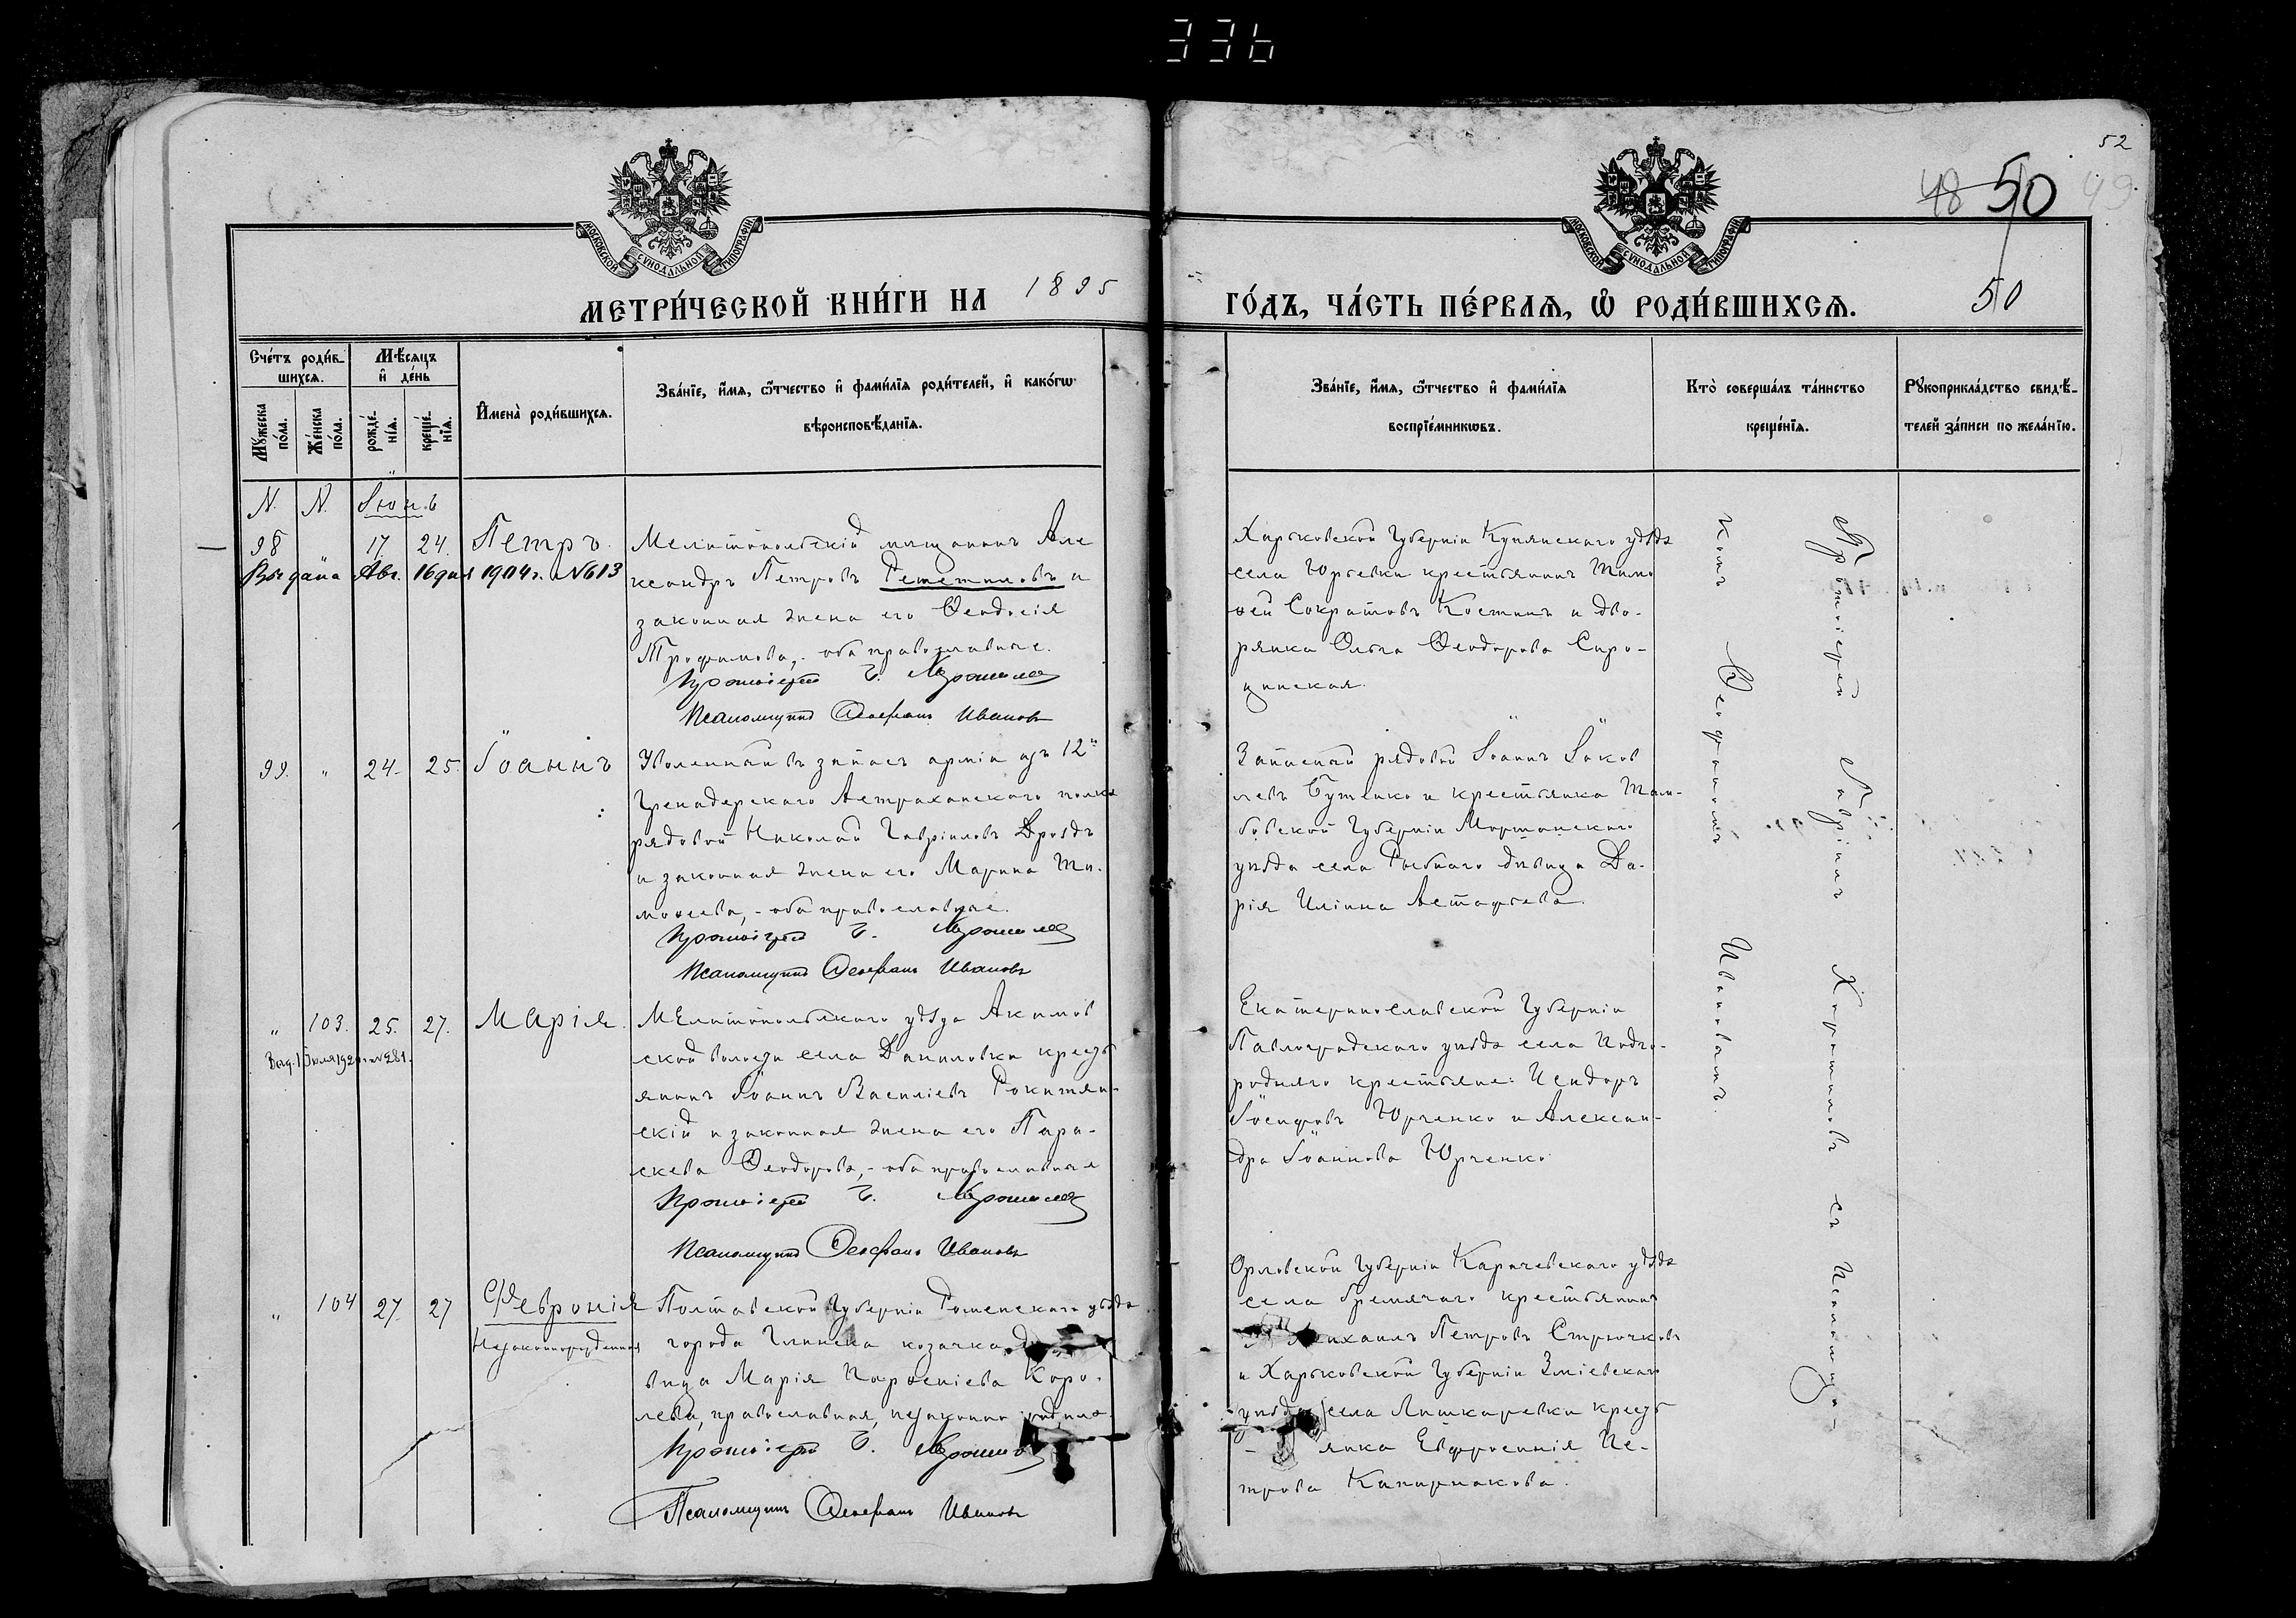 336
52
48 50 49
50
МОСКОВСКОЙ СѴНОДАЛЬНОЙ ТИПОГРАФІИ
МОСКОВСКОЙ СѴНОДАЛЬНОЙ ТИПОГРАФІИ
МЕТРИ́ЧЕСКОЙ КНИ́ГИ НА 1895
ГО́ДЪ, ЧА́СТЬ ПЕ́РВАѦ, Ѽ РОДИ́ВШИХСѦ.
Сче́тъ роди́в-
шихсѧ.
Мѣ́сѧцъ
и҆ де́нь
Мꙋ́жеска
по́ла.
Же́нска
по́ла.
рожде́-
нїѧ.
креще́-
нїѧ.
И҆мена̀ роди́вшихсѧ.
Зва́нїе, и҆́мѧ, ѻ҆́тчество и҆ фами́лїѧ роди́телей, и҆ како́гѡ
вѣроисповѣ́данїѧ.
Зва́нїе, и҆́мѧ, ѻ҆́тчество и҆ фами́лїѧ
воспрїе́мникѡвъ.
Кто̀ соверша́лъ та́инство
креще́нїѧ.
Рꙋкоприкла́дство свидѣ́-
телей за́писи по жела́нїю.
N. N. Іюнь
98 " 17. 24. Петръ.
Выдана Авг. 16 дня 1904 г. № 613
Мелитопольскій мѣщанинъ Але
ксандръ Петровъ Решетиловъ и
законная жена его Ѳеодосія
Трофимова,- оба православные.
Протоіерей Г. Коротиловъ
Псаломщикъ Ѳеофанъ Ивановъ
Харьковской Губерніи Купянскаго уѣзда
села Юрьевки крестьянинъ Тимо
ѳей Сократовъ Костинъ и дво-
рянка Ольга Ѳеодорова Сиро-
цинская.
99. " 24. 25. Іоаннъ
Уволенный въ запасъ арміи изъ 12го
Гренадерскаго Астраханскаго полка
рядовой Николай Гавріиловъ Дроздъ
и законная жена его Марина Ти-
моѳеева,- оба православные.
Протоіерей Г. Коротиловъ
Псаломщикъ Ѳеофанъ Ивановъ
Запасный рядовой Іоаннъ Іаков
левъ Бутенко и крестьянка Там-
бовской Губерніи Моршанскаго
уѣзда села Рыбнаго дѣвица Да-
рія Иліина Астафьева.
" 103. 25. 27. Марія.
Мелитопольскаго уѣзда Акимов
ской волости села Даниловки кресть
янинъ Іоаннъ Василіевъ Рокитян-
скій и законная жена его Пара-
скева Ѳеодорова,- оба православные
Протоіерей Г. Коротиловъ
Псаломщикъ Ѳеофанъ Ивановъ
Екатеринославской Губерніи
Павлоградскаго уѣзда села Подго-
роднаго крестьяне: Исидоръ
Іосифовъ Юрченко и Алексан-
дра Іоаннова Юрченко
" 104 27. 27 Февронія
Незаконнорожденная
Полтавской Губерніи Роменскаго уѣзда
города Глинска козачка дѣ-
вица Марія Парѳеніева Коро-
лева, православная, незаконно родила.
Протоіерей Г. Коротиловъ
Псаломщикъ Ѳеофанъ Ивановъ
Орловской Губерніи Карачевскаго уѣзда
села Бремячаго крестьянинъ
Михаилъ Петровъ Стрючковъ
и Харьковской Губерніи Зміевскаго
уѣзда села Лишкаревки кресть
янка Евфросинія Пе-
трова Капирнакова.
Протоіерей Гавріилъ Коротиловъ съ Псаломщи-
комъ Ѳеофаномъ Ивановымъ.